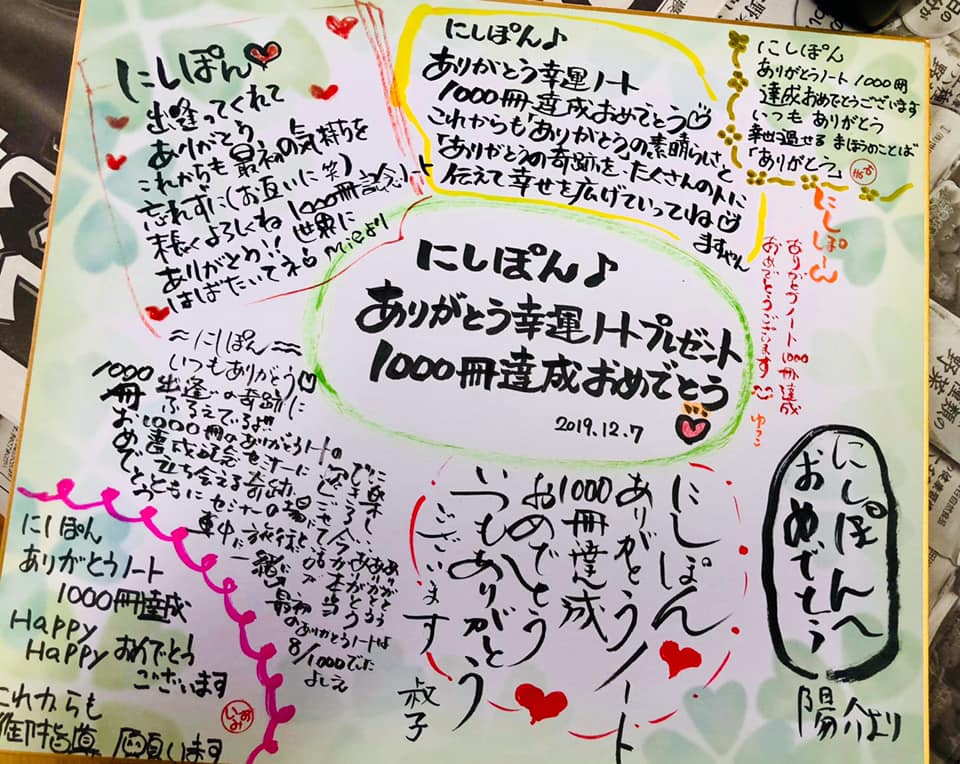 にしぽん
出逢ってくれて
ありがとう
これからも最初の気持ちを
忘れずに(お互いに笑)
末長くよろしくね 1000冊記念ノート
ありがとう!! 世界に
はばたいてネ!
にしぽん♪
ありがとう幸運ノート
1000冊達成おめでとう
これからも「ありがとう」の素晴らしさと
「ありがとう」の奇跡をたくさんの人に
伝えて幸せを広げていってね
ますやん
にしぽん
ありがとうノート 1000冊
達成おめでとうございます
いつも ありがとう
幸せ過せる まほうのことば
「ありがとう」
にしぽ〜ん
ありがとうノート1000冊達成
おめでとうございます
ゆうこ
にしぽん♪
ありがとう幸運ノートプレゼント
1000冊達成おめでとう
2019.12.7
≈にしぽん≈
いつもありがとう
出逢いの奇跡に
ふるえているよ!!
1000冊のありがとうノートの
達成記念セミナーに
立ち会える奇跡
1000冊おめでとう
とともにセミナーの場に
車中に旅行に
一緒に
最初
のありがとうノートは
8/1000でした
よしえ
にしぽん
ありがとうノート
1000冊達成
おめでとう
いつもありがとう
ございます
叔子
にしぽんへ
おめでとう
陽介より
にしぽん
ありがとうノート
1000冊達成
Happy
Happy おめでとう
ございます
これからも
御指導 願います